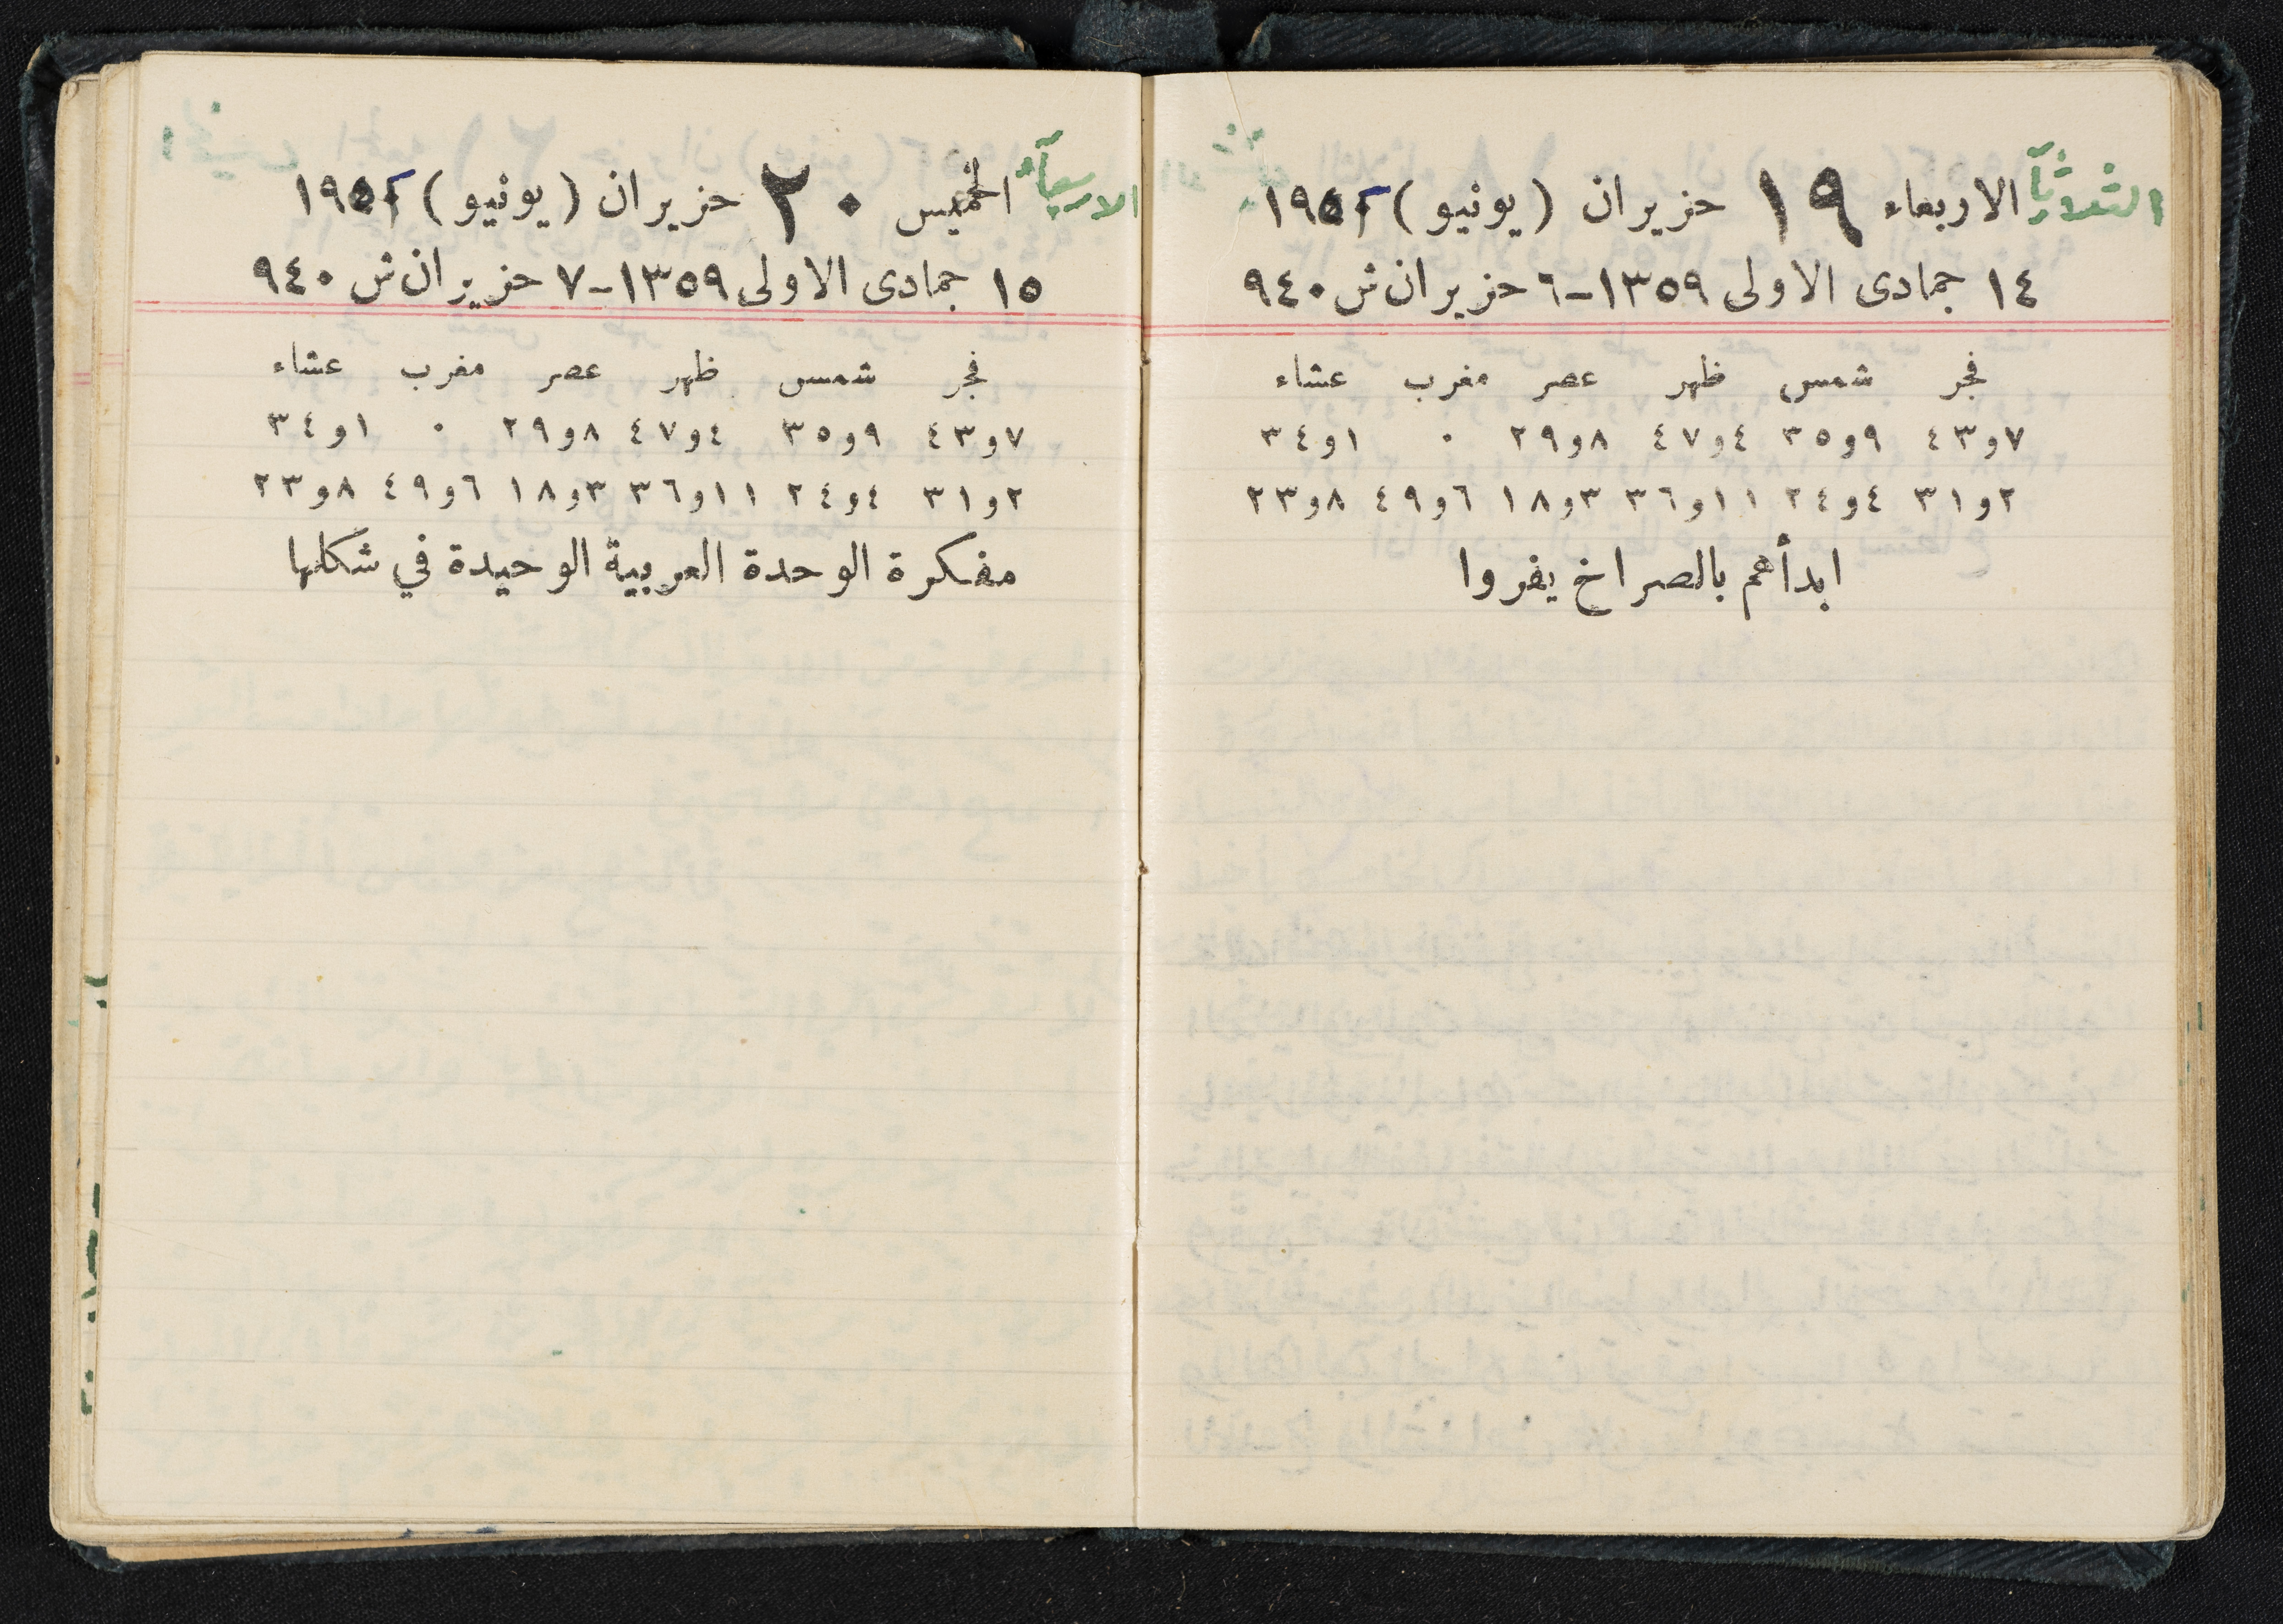 الثلاثآ الاربعاء ١٩ حزيران (يونيو) ١٩٥٢
١٤ جمادى الاولى ١٣٥٩-٦ حزيران ش ٩٤٠
فجر شمس ظهر عصر مغرب عشاء
٧و٤٣ ٩و٣٥ ٤و٤٧ ٨و٢٩ ٠ ١و٣٤
٢و٣١ ٤و٢٤ ١١و٣٦ ٣و١٨ ٦و٤٩ ٨و٢٣
ابدأهم بالصراخ يفروا
الاربعآء الخميس ٢٠ حزيران (يونيو) ١٩٥٢
١٥ جمادى الاولى ١٣٥٩-٧ حزيران ش ٩٤٠
فجر شمس ظهر عصر مغرب عشاء
٧و٤٣ ٩و٣٥ ٤و٤٧ ٨و٢٩ ٠ ١و٣٤
٢و٣١ ٤و٢٤ ١١و٣٦ ٣و١٨ ٦و٤٩ ٨و٢٣
مفكرة الوحدة العربية الوحيدة في شكلها